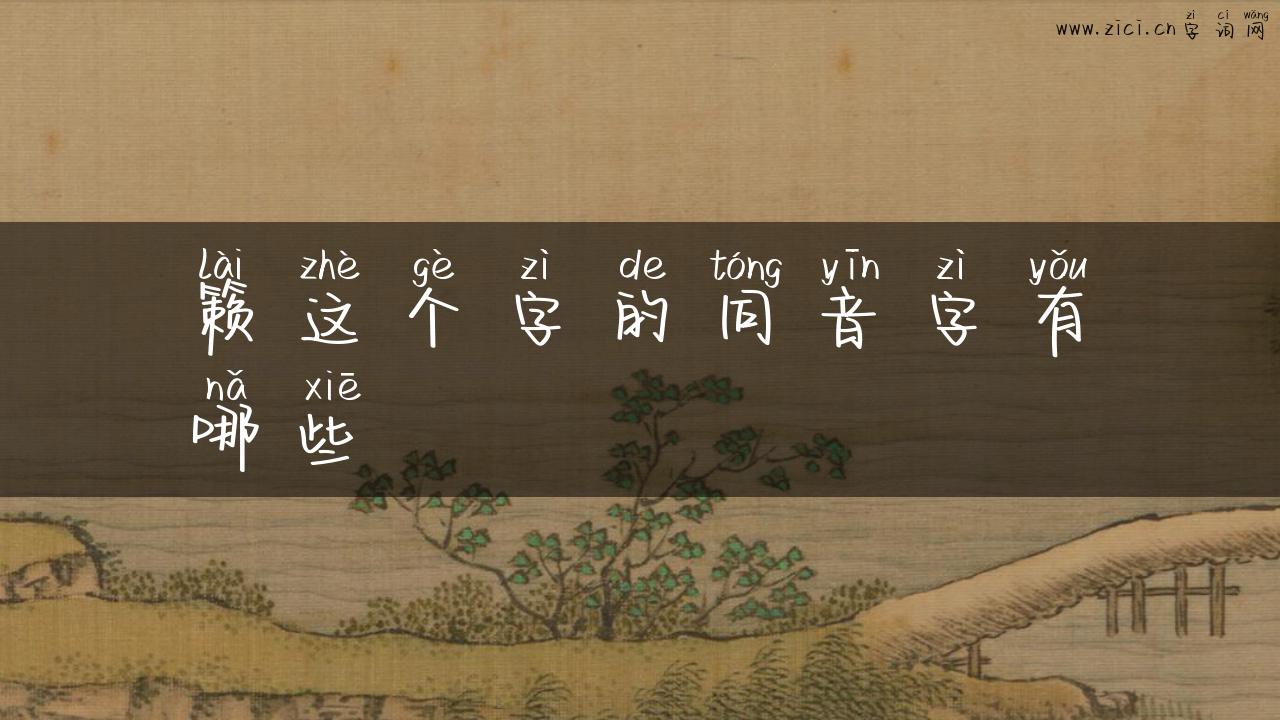 zì cí wǎng
www.zici.cn 字 词 网
lài zhè gè zì de tóng yīn zì yǒu
籁 这 个 字 的 同 音 字 有
nǎ xiē
哪 些